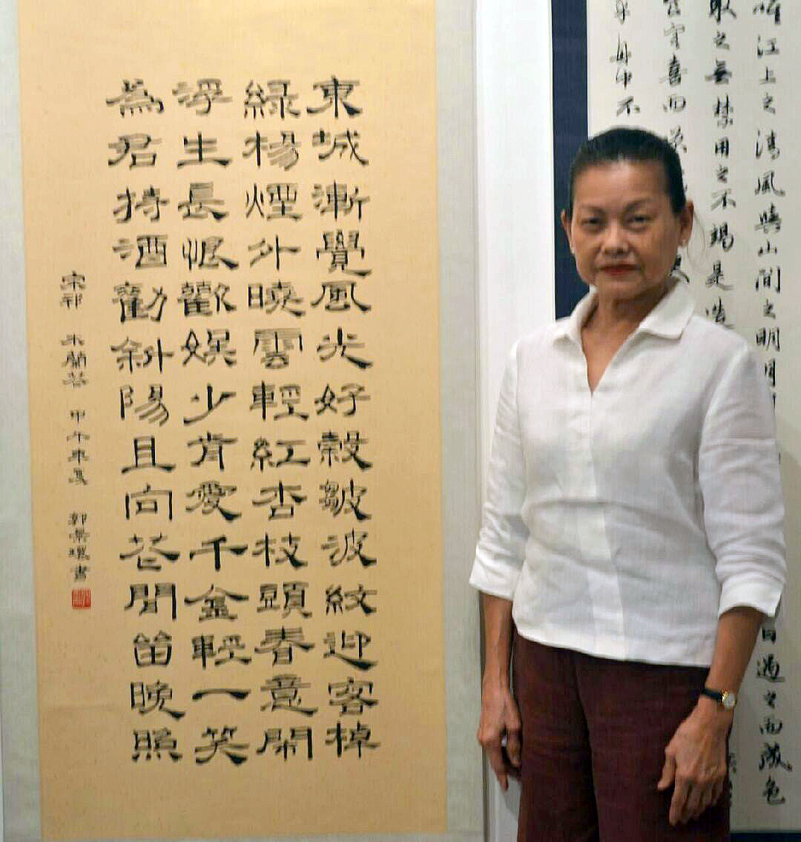 唯江上之清風與山間之明月 目遇之而成色
取之無禁用之不竭是造
客喜而笑
乎舟中不
東城漸覺風光好縠皺波紋迎客棹
綠楊煙外曉雲輕紅杏枝頭春意鬧
浮生長恨歡娛少肯愛千金輕一笑
為君持酒勸斜陽且向花間留晚照
宋祁 木蘭花 甲午年夏 郭景環書